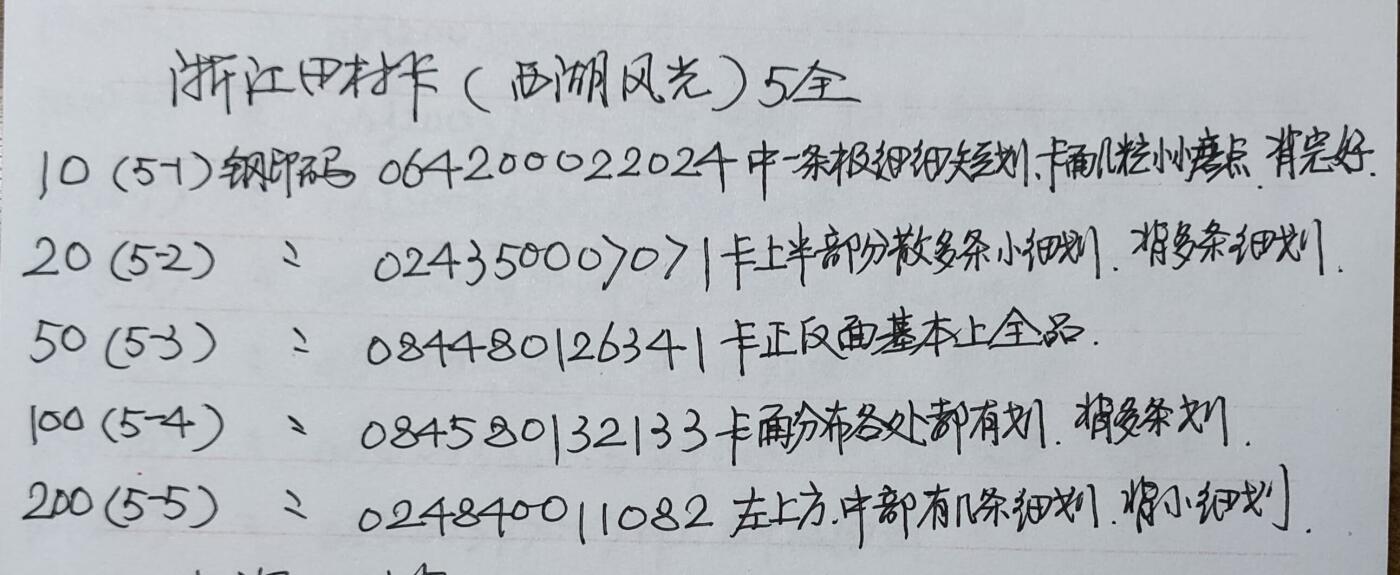 浙江田村卡（西湖风光）5全
10（5-1）钢印码 064200022024中一条极细细短划、卡面几粒小小磨点.背完好.
20（5-2） 〃 024350007071卡上半部分散多条小细划.背多条细划.
50（5-3） 〃 084480126341卡正反面基本上全品.
100（5-4） 〃 084580132133卡面分布各处都有划.背多条划.
200（5-5） 〃 024840011082左上方.中部有几条细划.背小细划.